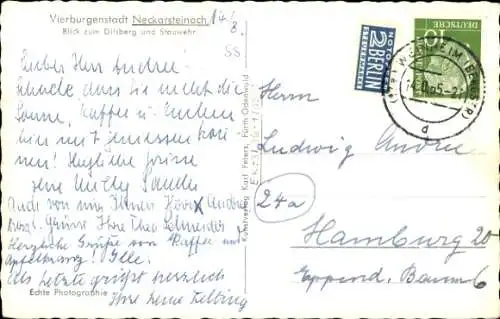 Vierburgenstadt Neckarsteinach.
Blick zum Dilsberg und Stauwehr
14/8.
55
Lieber Herr Andree.
Schade dass Sie nicht die
Sonne, Kaffee u. Kuchen
hier mit geniessen kön-
nen! Herzliche Grüsse
Ihre Milly
Auch von mir Ihnen Herr Andree
herzl. Grüsse Ihre Thea Schneider
Herzliche Grüße von Kaffee und
Apfelkuchen! Elle.
Als Letzte grüßt herzlich
Ihre
Echte Photographie
Kunstverlag Karl Peters, Fürth Odenwald
NOTOPFER
2 BERLIN
STEUERMARKE
DEUTSCHE
10
WEINHEIM (BERGSTR)
d
Herrn
Ludwig Andree
24a
Hamburg 20
Eppend. Baum 6